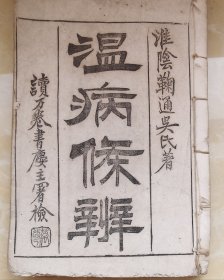 淮陰鞠通吳氏著
温病條辨
讀万卷書廔主署檢